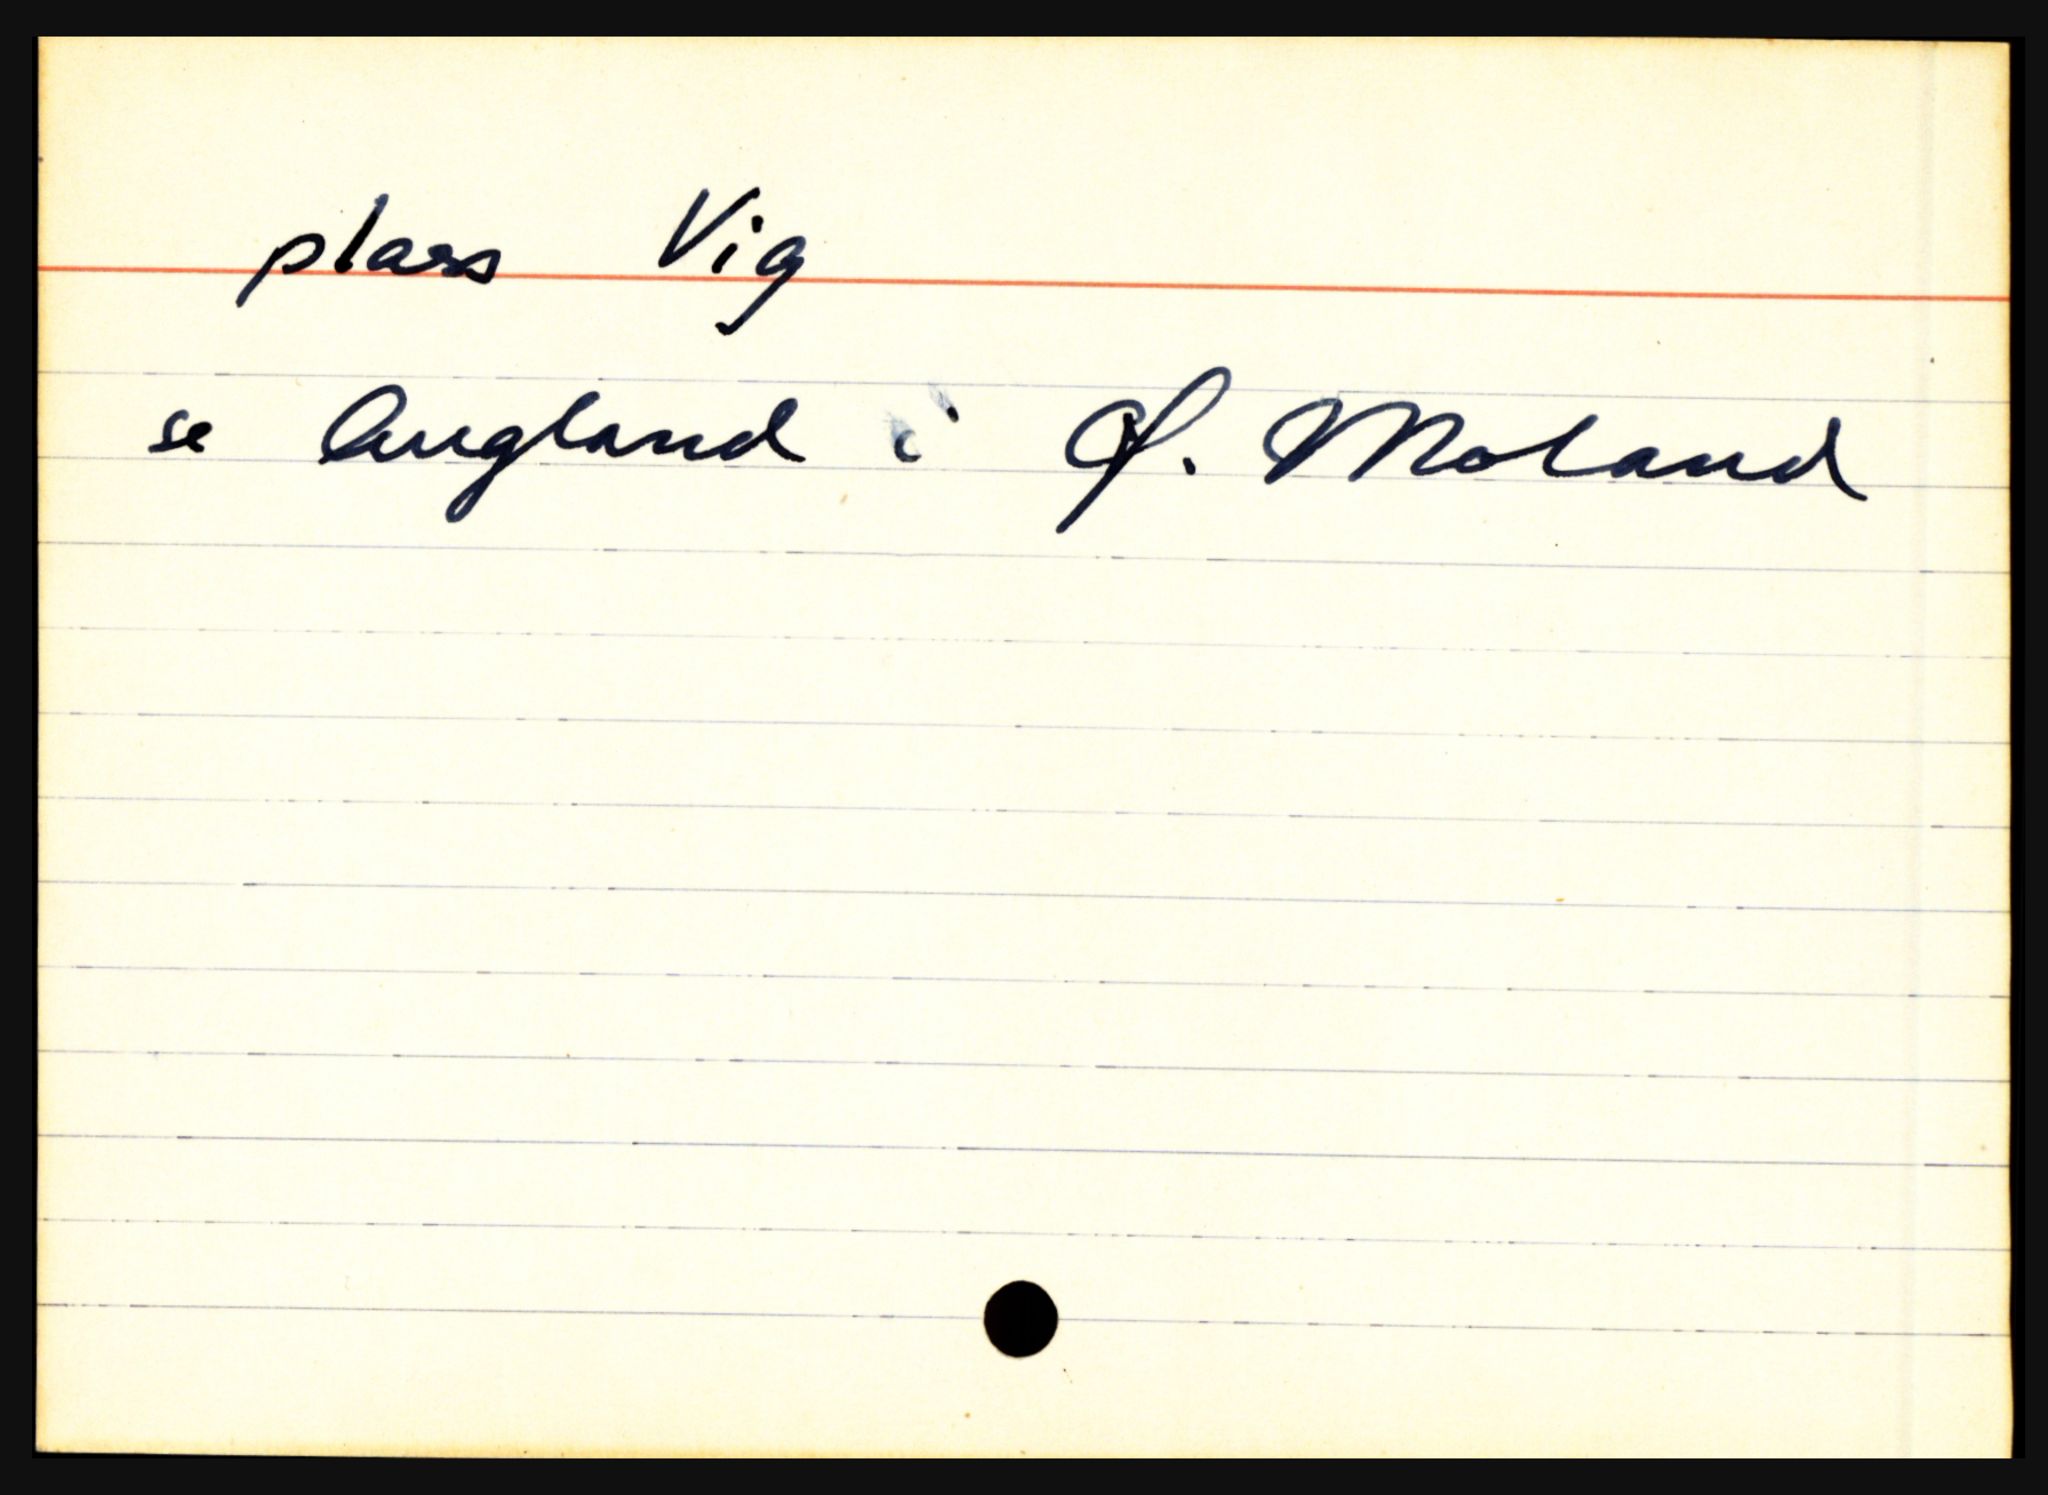 plass Vig
se Angland i Ø. Moland